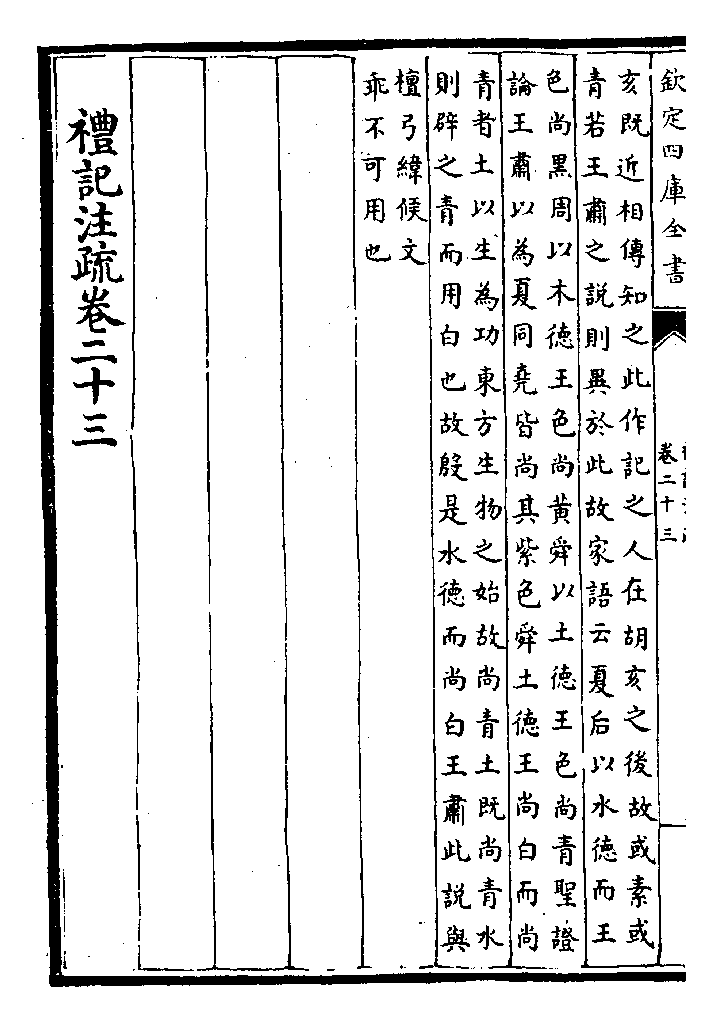 欽定四庫全書
卷二十三
亥既近相傳知之此作記之人在胡亥之後故或素或
青若王肅之說則異於此故家語云夏后以水德而王
色尚黑周以木德王色尚黃舜以土德王色尚青聖證
論王肅以為夏同堯皆尚其紫色舜土德王尚白而尚
青者土以生為功東方生物之始故尚青土既尚青水
則辟之青而用白也故殷是水德而尚白王肅此說與
檀弓緯候文
乖不可用也
禮記注疏卷二十三